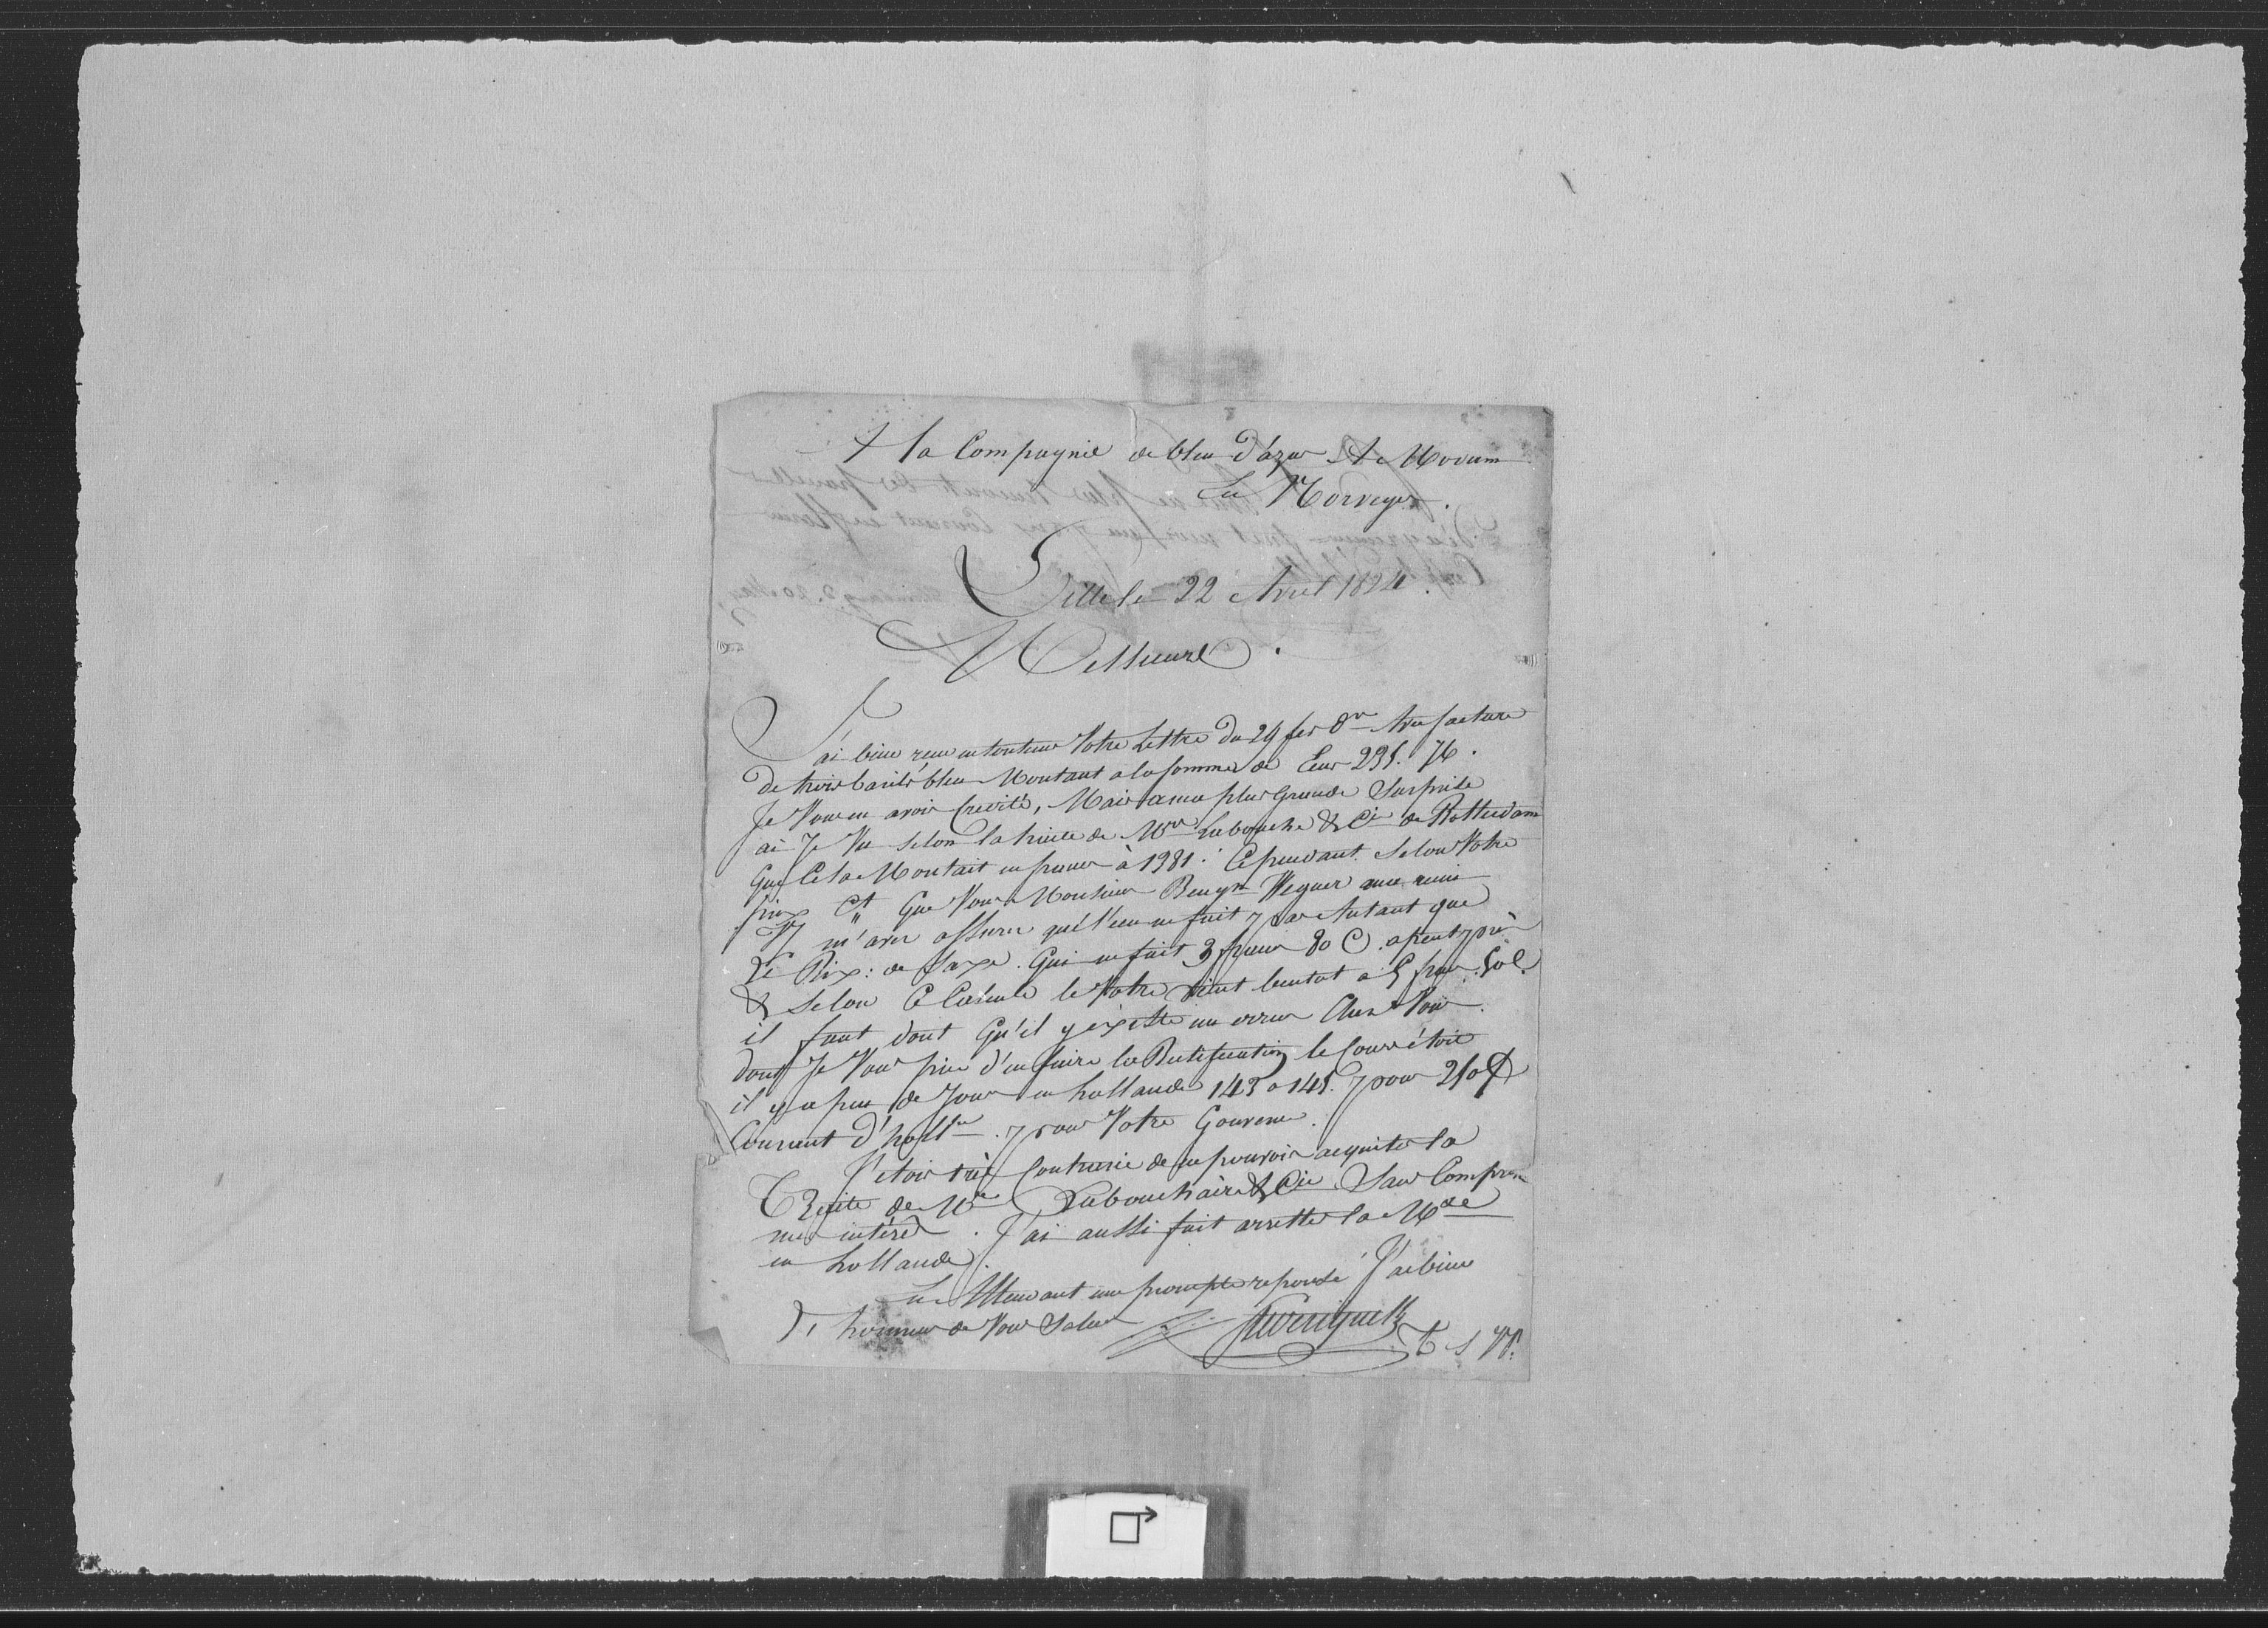 A la Compagnie de bleu d'azur A Modum
En Norvege.
Lille le 22 Avril 1824.
Messieurs.
J'ai bien reçu en son tems Votre Lettre du 24 fev dr Avec facture
de trois barils bleu Montant a la somme de Ecus 235. 76.
Je Vous en avois Credité, Mais a ma plus Grande Surprise
ai Je Vu selon la traite de Mrs Labouche & Cie de Rotterdam
Que Cela Montait en francs à 1981. Cependant selon Votre
prix Ct Que Vous Monsieur Benjn Wegner
m'avez assurer que l'ecu ne fait pas Autant que
Le Rix: de Saxe. Qui ne fait 3 francs 80 C. a peut près
& selon Ce Calcule le Votre vient bientot a 5 frs 50 C.
il faut dont Qu'il y existe un erreur Chez Vous.
dont Je Vous prie d'en faire la Rectification le Cours étoit
il y a peu de Jours en hollande 143 a 145. pour 250
Courant d'hollde. pour Votre Gouverne.
J'etois très Contrarié de ne pouvoir acquiter la
Traite de Mrs Labouchaire & Cie. Sans Comprom
mes intérêt. J'ai aussi fait arretter la Mdse
en hollande.
En Attendant une prompte reponse J'ai bien
l'honneur de Vous Saluer
T S V P.